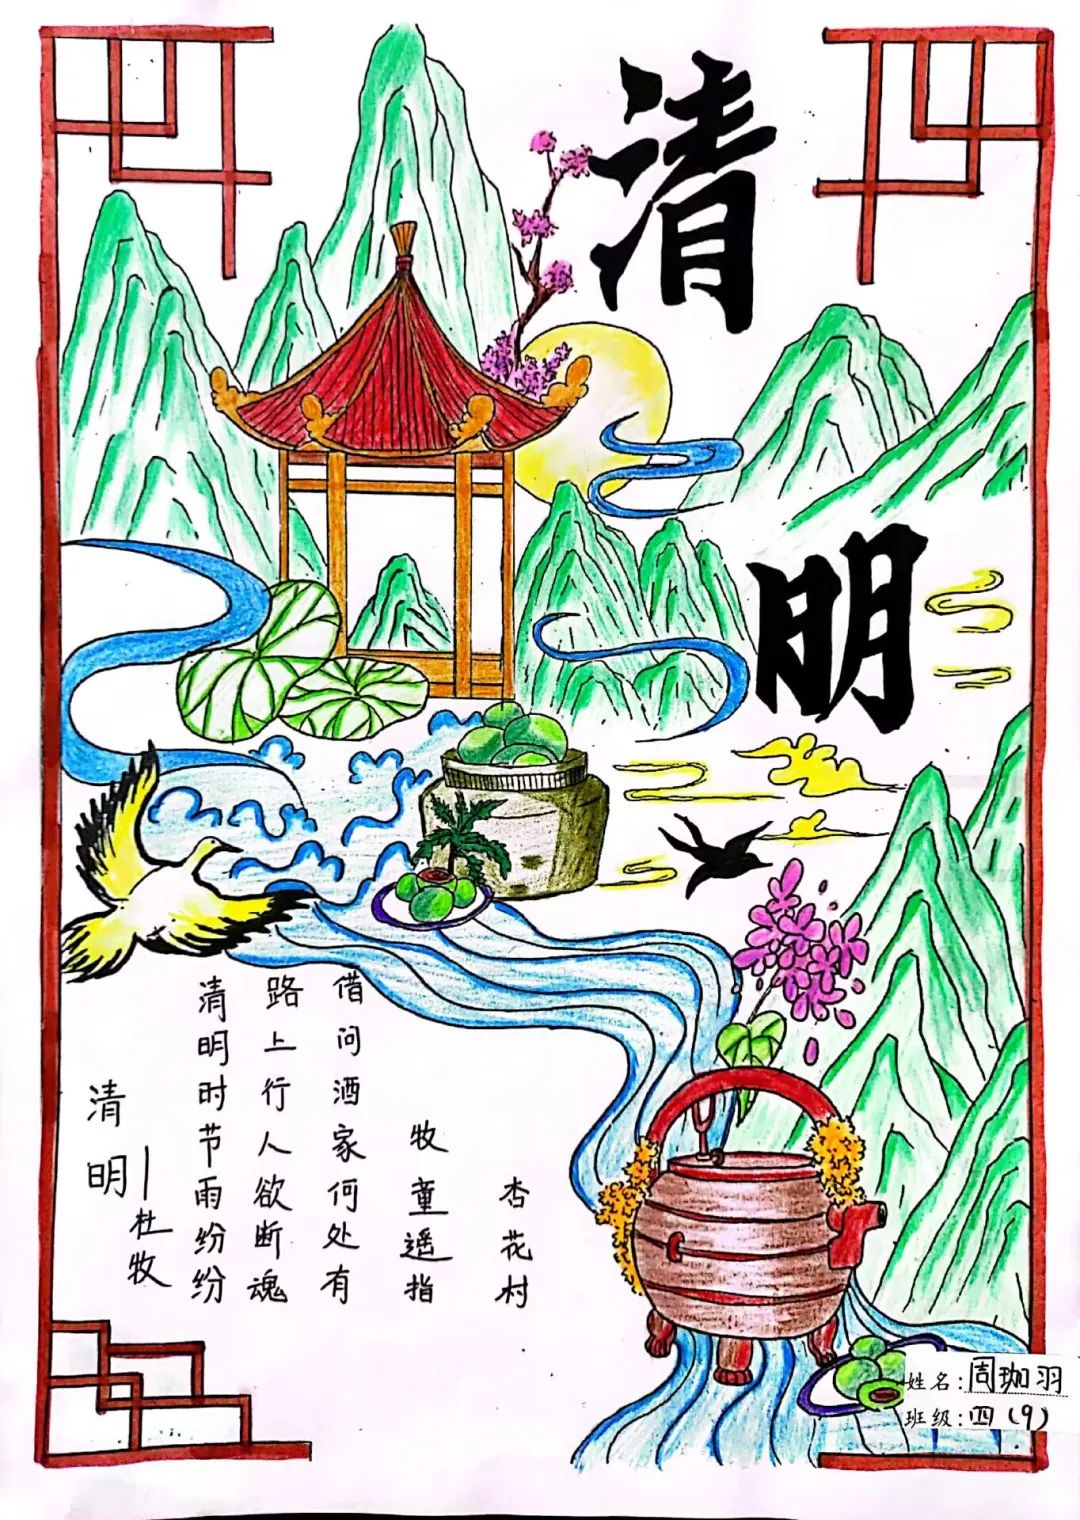 清明
清明
—杜牧
清明时节雨纷纷
路上行人欲断魂
借问酒家何处有
牧童遥指
杏花村
姓名:周珈羽
班级:四(9)